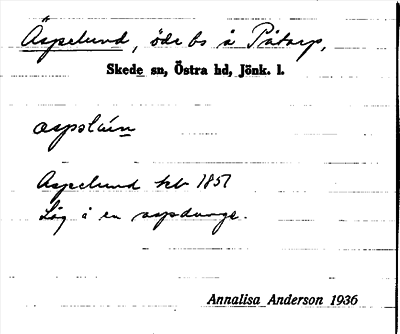 Äspelund, öde bs å Påtorp,
Skede sn, Östra hd, Jönk. l.
Aspelund kb 1851
Låg i en aspdunge.
Annalisa Anderson 1936